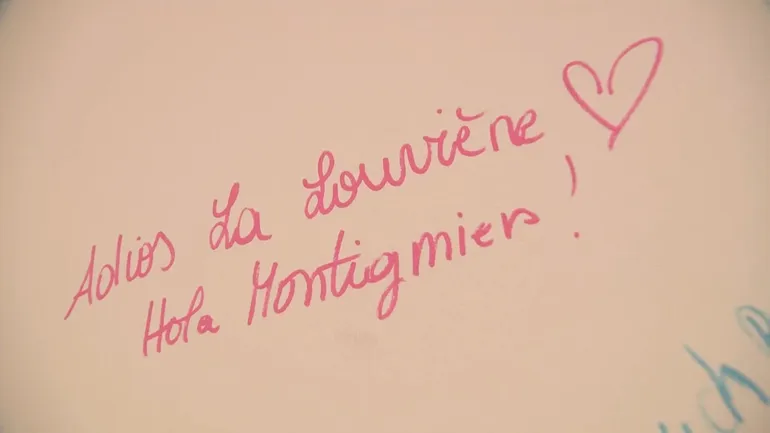 Adios La Louvière
Hola Montignies !